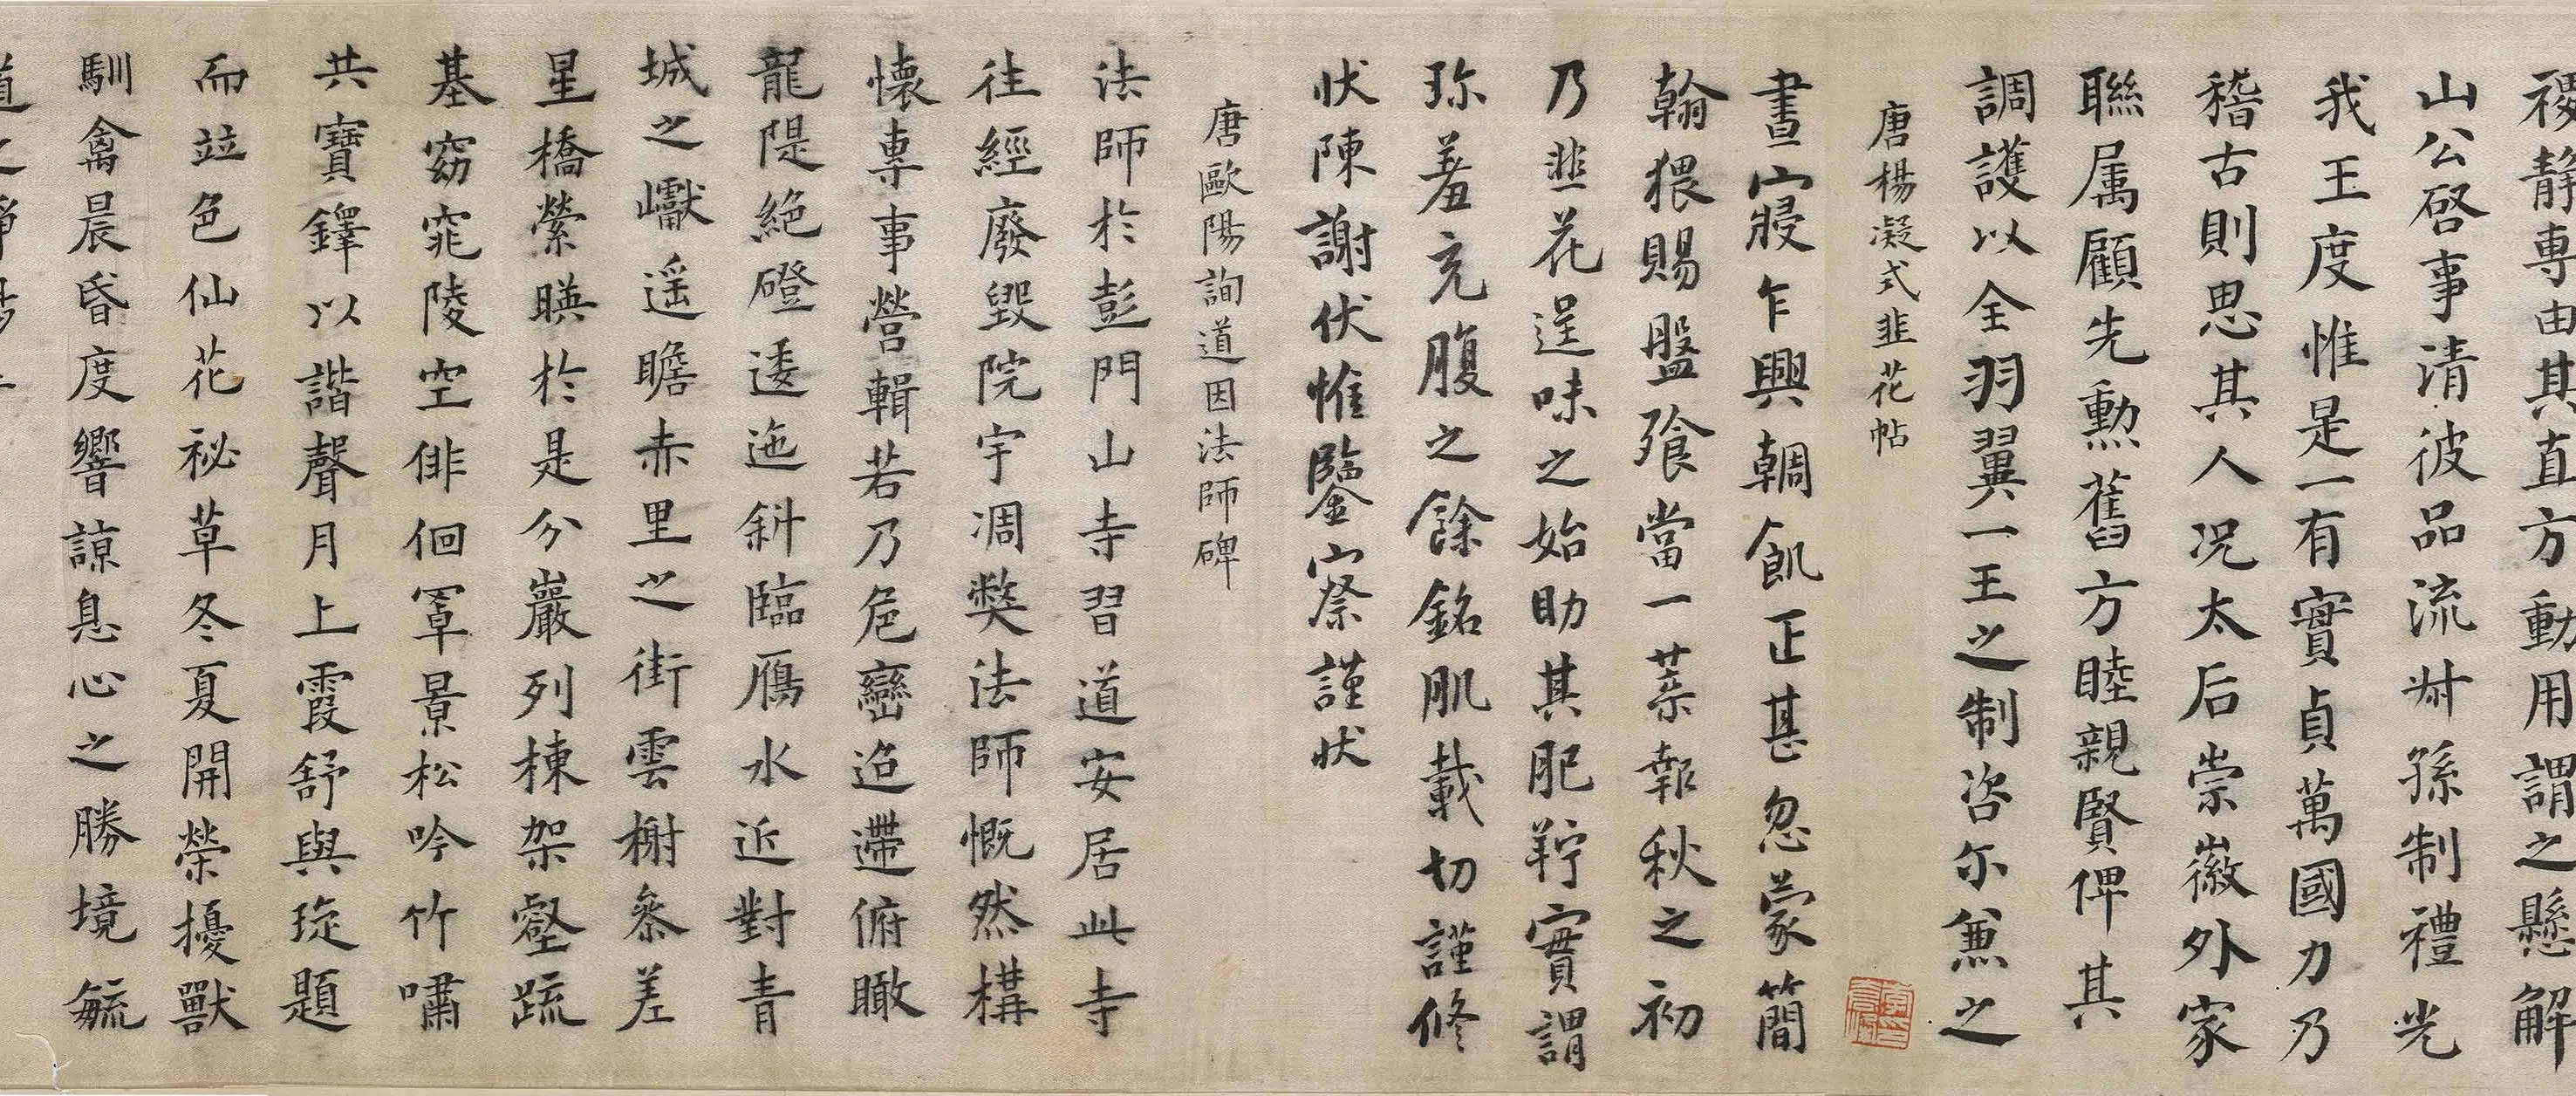 稷靜專由其直方動用謂之懸解
山公啓事清彼品流叔孫制禮光
我王度惟是一有實貞萬國力乃
稽古則思其人况太后崇徽外家
聯属顧先勲舊方睦親賢俾其
調護以全羽翼一王之制咨尓兼之
唐楊凝式韭花帖
晝寢乍興輖飢正甚忽蒙簡
翰猥賜盤飱當一葉報秋之初
乃韭花逞味之始助其肥羜實謂
珎羞充腹之餘銘肌載切謹修
状陳謝伏惟鑒察謹状
唐歐陽詢道因法師碑
法師於彭門山寺習道安居此寺
往經廢毁院宇凋弊法師慨然構
懷專事營輯若乃危巒迢遰俯瞰
龍隄絶磴逶迤斜臨鴈水近對青
城之巘遥瞻赤里之街雲榭叅差
星橋縈暎於是分巖列棟架壑疏
基窈窕陵空俳佪罩景松吟竹嘯
共寶鐸以諧聲月上霞舒與琁題
而竝色仙花秘草冬夏開榮擾獸
馴禽晨昏度響諒息心之勝境毓
道之淨